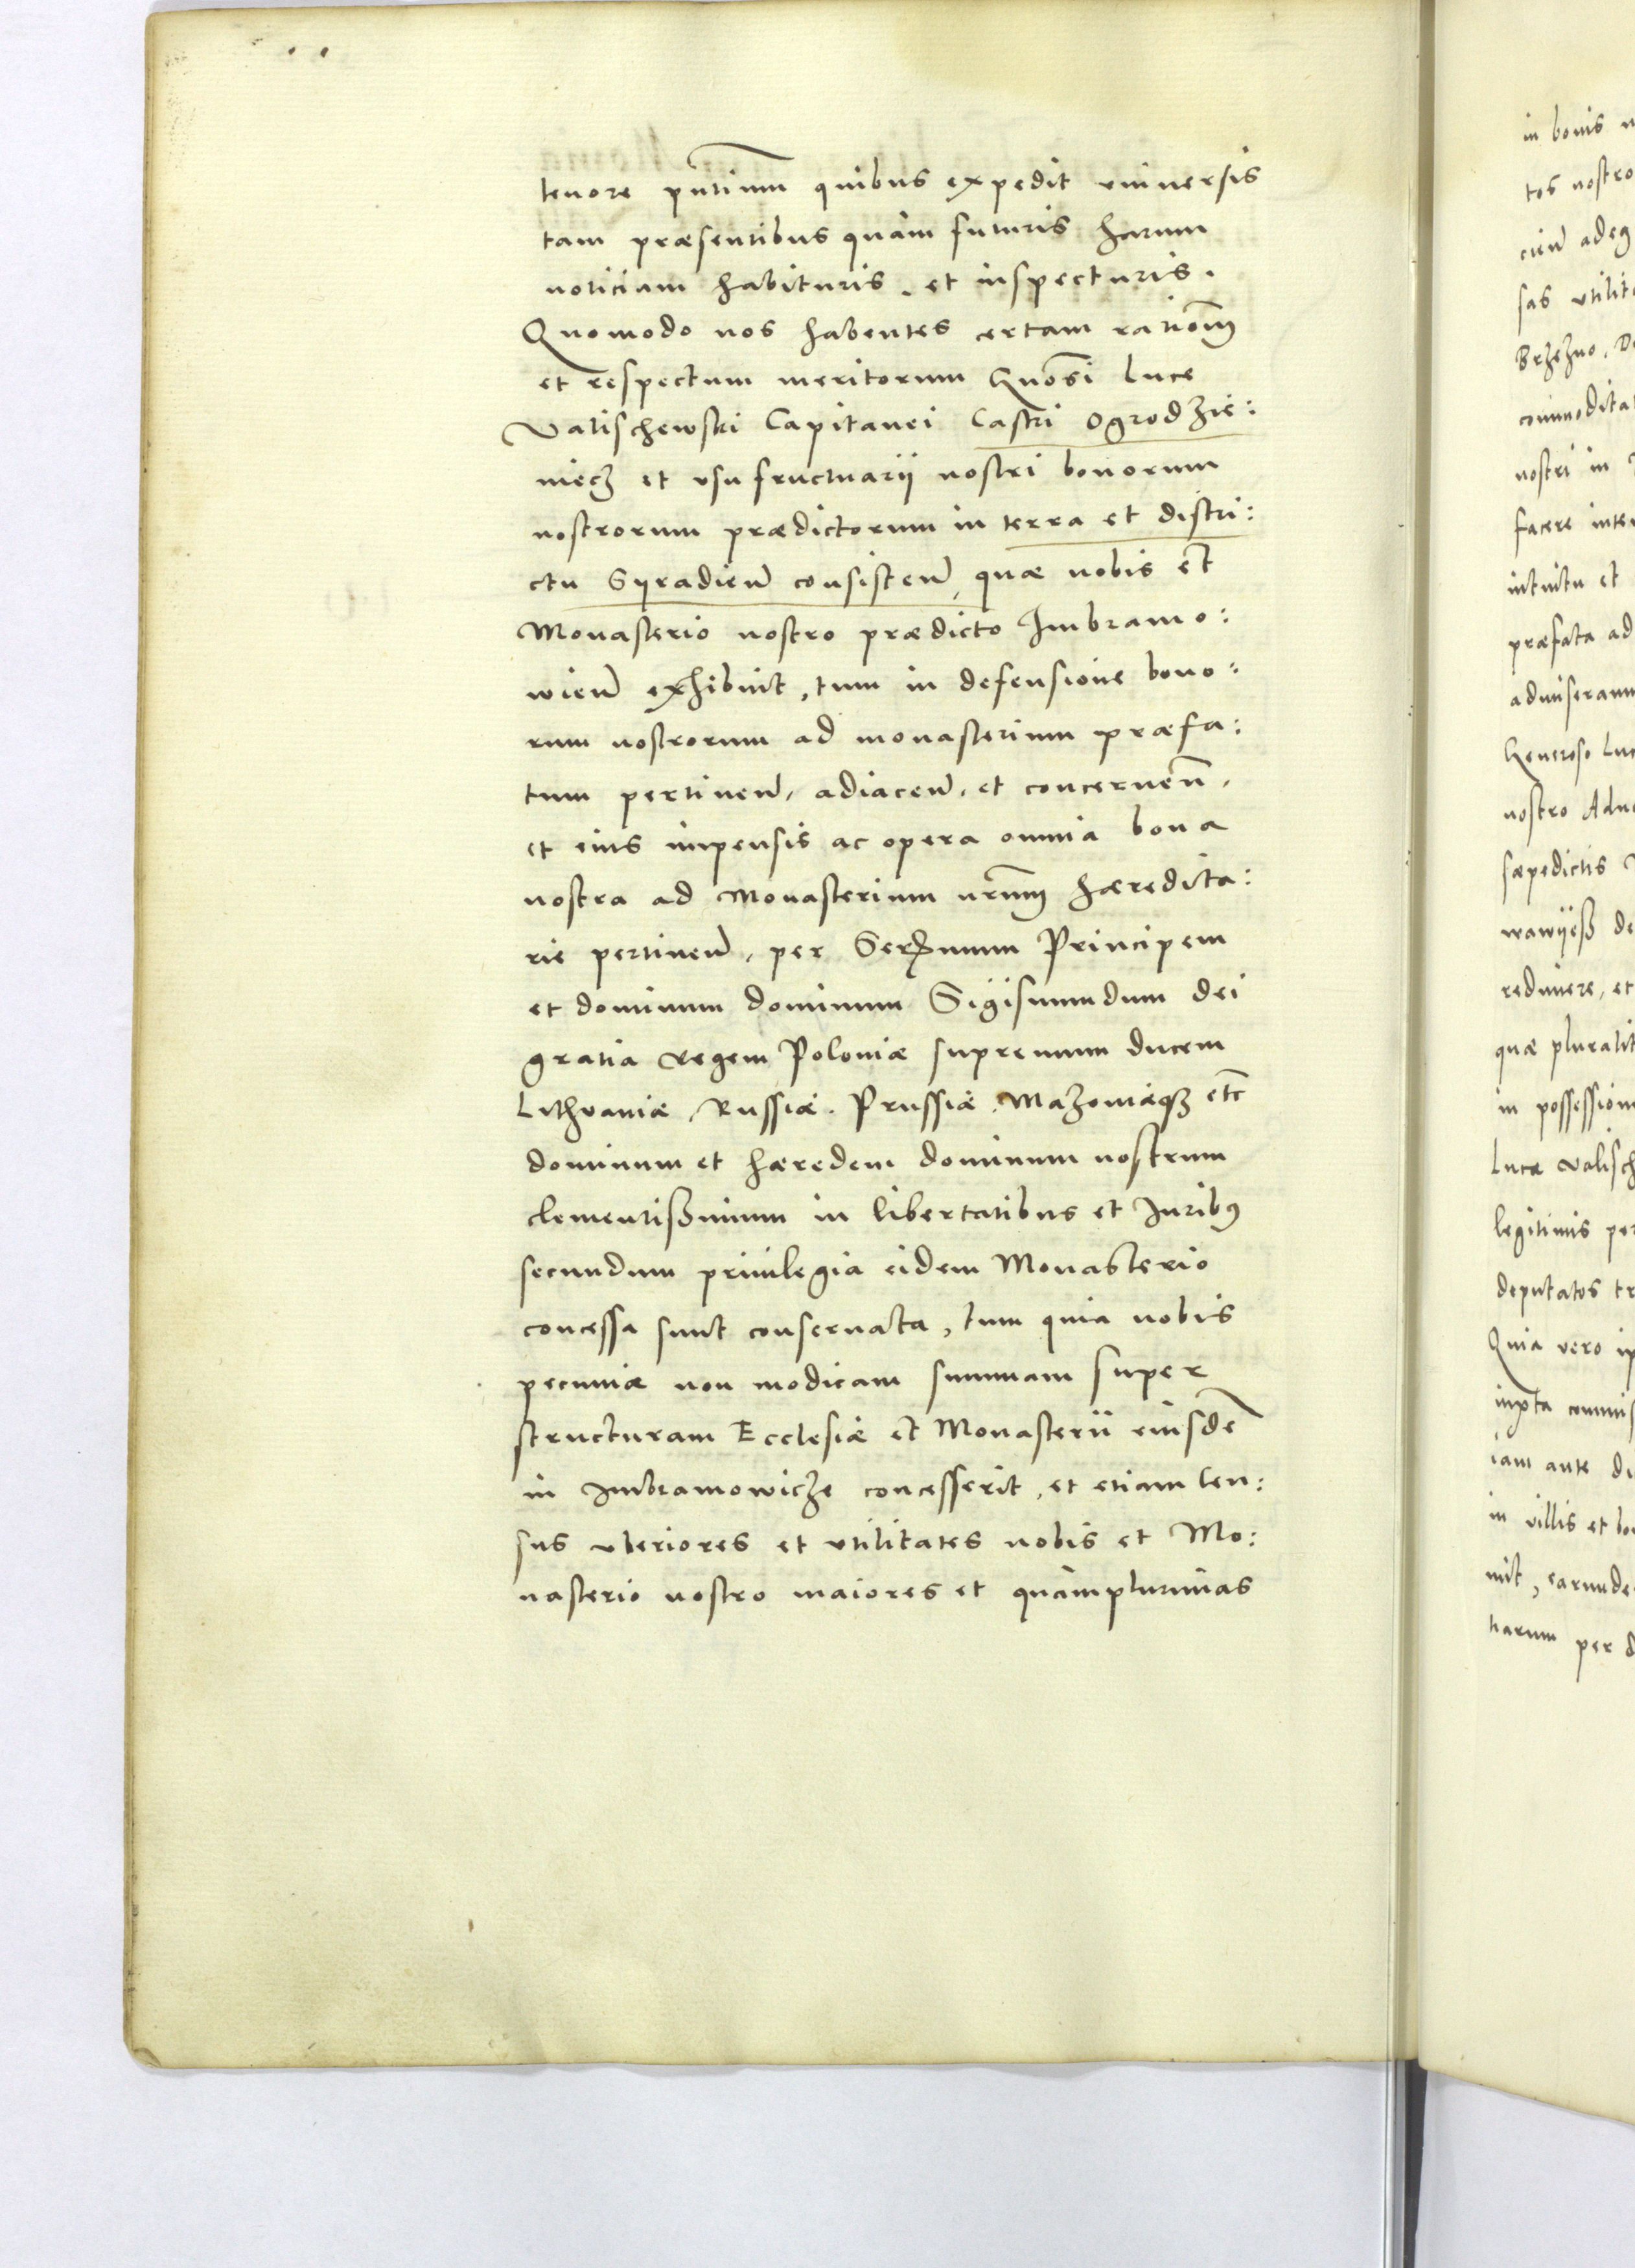 tenore pn̄tium quibus expedit vniuersis
tam præsentibus quàm futuris harum
noticiam habituris. et inspecturis.
Quomodo nos habentes certam rationē
et respectum meritorum Gn̄osi Luce
Valischewski Capitanei Castri Ogrodzie:
niecz et vsufructuarij nostri bonorum
nostrorum prædictorum in terra et distri:
ctu Syradien̄ consisten̄, quæ nobis et
Monasterio nostro prædicto Imbramo:
wien̄ exhibuit, tum in defensione bono:
rum nostrorum ad monasterium præfa:
tum pertinen̄, adiacen̄, et concernen̄,
et eius impensis ac opera omnia bona
nostra ad Monasterium nr̄um hæredita:
rie pertinen̄, per Serenissimum Principem
et dominum dominum Sigismundum dei
gratia Regem Poloniæ supremum ducem
Lithvaniæ, Russiæ. Prussiæ. Mazoniæq₃ etc̄
dominum et hæredem dominum nostrum
clementißimum in libertatibus et Juribꝰ
secundum priuilegia eidem Monasterio
concessa sunt conseruata, tum quia nobis
pecuniæ non modicam summam super
structuram Ecclesiæ et Monasterii eiusdē
in Imbramowicze concesserit, et etiam Cen:
sus vberiores et vtilitates nobis et Mo:
nasterio nostro maiores et quàmplurimas
in bonis
tos nostro
cien̄ adeq
sas vtilit
Brzezno. D
commodita
nostri in
facere inte
intuitu et
præfata ad
admiseram
Generoso Lu
nostro Adu
sæpedictis
de
redimere, et
quæ pluralit
in possession
Lucæ Valisch
legitimis per
deputatos tr
Quia vero ip
iuxta commis
iam ante di
in villis et bo
nit, earunde
tiarum per d